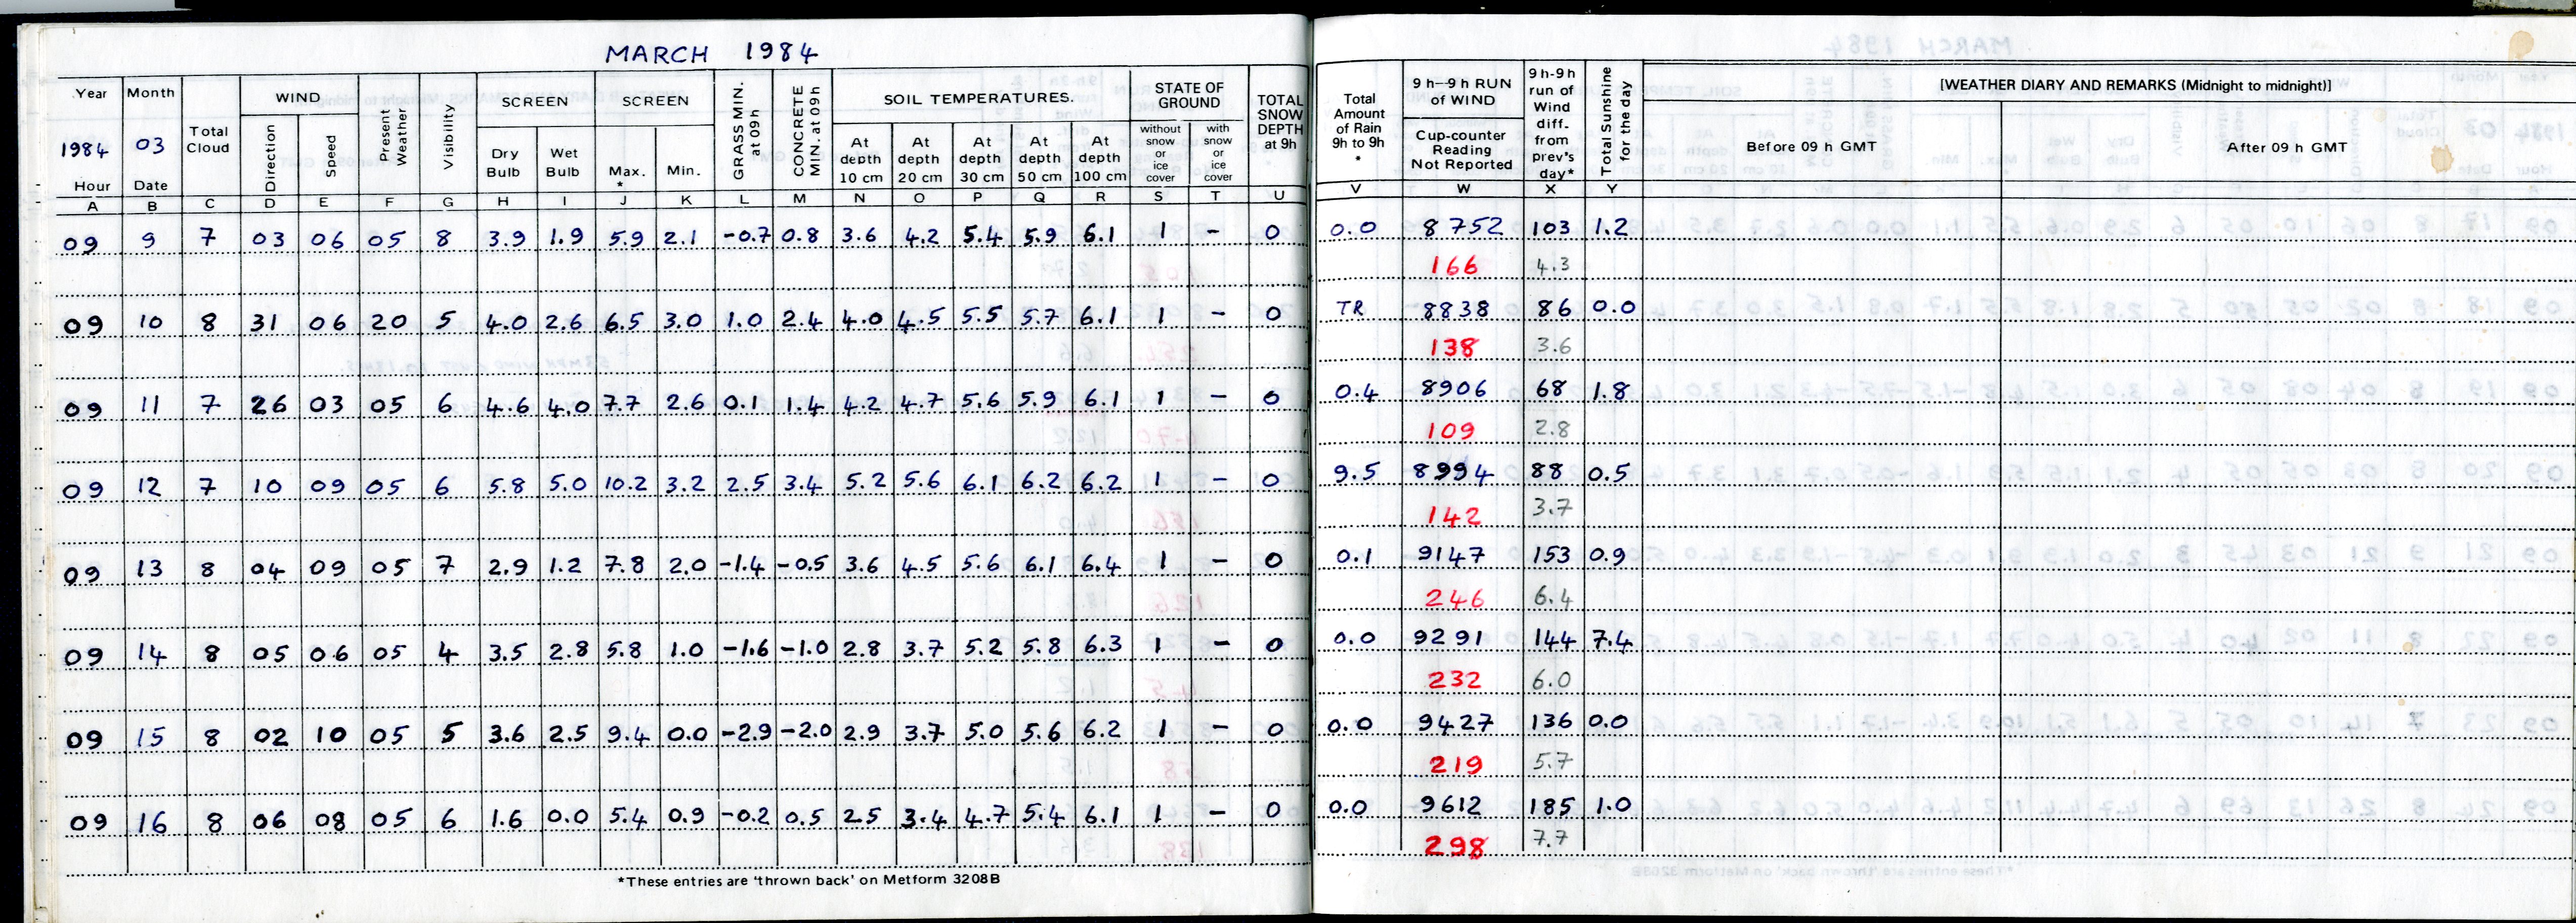 MARCH 1984
Year Month WIND SCREEN SCREEN GRASS MIN. at 09h CONCRETE MIN. at 09h SOIL TEMPERATURES. STATE OF GROUND TOTAL SNOW DEPTH at 9h Total Amount of Rain 9h to 9h * 9 h-9 h RUN of WIND 9 h-9 h run of Wind diff. from prev's day* Total Sunshine for the day [WEATHER DIARY AND REMARKS (Midnight to midnight)]
1984 03 Total Cloud Direction Speed Present Weather Visibility Dry Bulb Wet Bulb Max. * Min. At depth 10 cm At depth 20 cm At depth 30 cm At depth 50 cm At depth 100 cm without snow or ice cover with snow or ice cover Cup-counter Reading Not Reported Before 09 h GMT After 09 h GMT
Hour Date
A B C D E F G H I J K L M N O P Q R S T U V W X Y
09 9 7 03 06 05 8 3.9 1.9 5.9 2.1 -0.7 0.8 3.6 4.2 5.4 5.9 6.1 1 - 0 0.0 8752 103 1.2
166 4.3
09 10 8 31 06 20 5 4.0 2.6 6.5 3.0 1.0 2.4 4.0 4.5 5.5 5.7 6.1 1 - 0 TR 8838 86 0.0
138 3.6
09 11 7 26 03 05 6 4.6 4.0 7.7 2.6 0.1 1.4 4.2 4.7 5.6 5.9 6.1 1 - 0 0.4 8906 68 1.8
109 2.8
09 12 7 10 09 05 6 5.8 5.0 10.2 3.2 2.5 3.4 5.2 5.6 6.1 6.2 6.2 1 - 0 9.5 8994 88 0.5
142 3.7
09 13 8 04 09 05 7 2.9 1.2 7.8 2.0 -1.4 -0.5 3.6 4.5 5.6 6.1 6.4 1 - 0 0.1 9147 153 0.9
246 6.4
09 14 8 05 06 05 4 3.5 2.8 5.8 1.0 -1.6 -1.0 2.8 3.7 5.2 5.8 6.3 1 - 0 0.0 9291 144 7.4
232 6.0
09 15 8 02 10 05 5 3.6 2.5 9.4 0.0 -2.9 -2.0 2.9 3.7 5.0 5.6 6.2 1 - 0 0.0 9427 136 0.0
219 5.7
09 16 8 06 08 05 6 1.6 0.0 5.4 0.9 -0.2 0.5 2.5 3.4 4.7 5.4 6.1 1 - 0 0.0 9612 185 1.0
298 7.7
*These entries are 'thrown back' on Metform 3208B